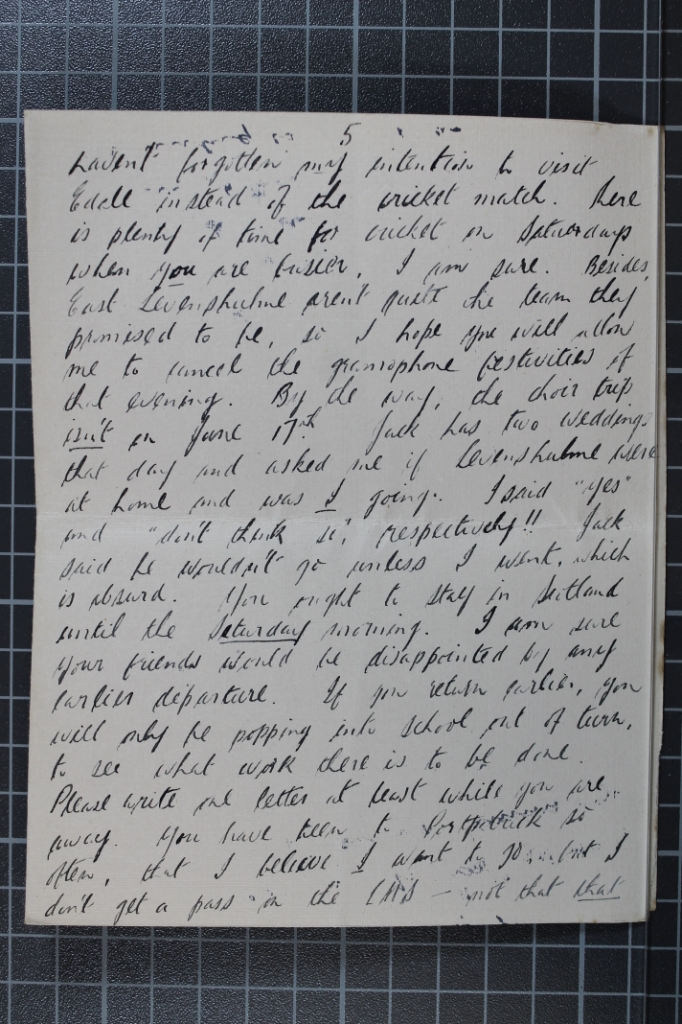 5
havent forgotten my intention to visit
Edale instead of the cricket match. There
is plenty of time for cricket on Saturdays
when you are busier, I am sure. Besides,
East Levenshulme aren't quite the team they
promised to be, so I hope you will allow
me to cancel the gramophone festivities of
that evening. By the way, the choir trip
isn't on June 17th. Jack has two weddings
that day and asked me if Levenshulme were
at home and was I going. I said "yes"
and "don't think so", respectively!! Jack
said he wouldn't go unless I went, which
is absurd. You ought to stay in Scotland
until the Saturday morning. I am sure
your friends would be disappointed by any
earlier departure. If you return earlier, you
will only be popping into school out of turn,
to see what work there is to be done.
Please write one letter at least while you are
away. You have been to Portpatrick so
often, that I believe I want to go but I
don't get a pass on the LMS – not that that